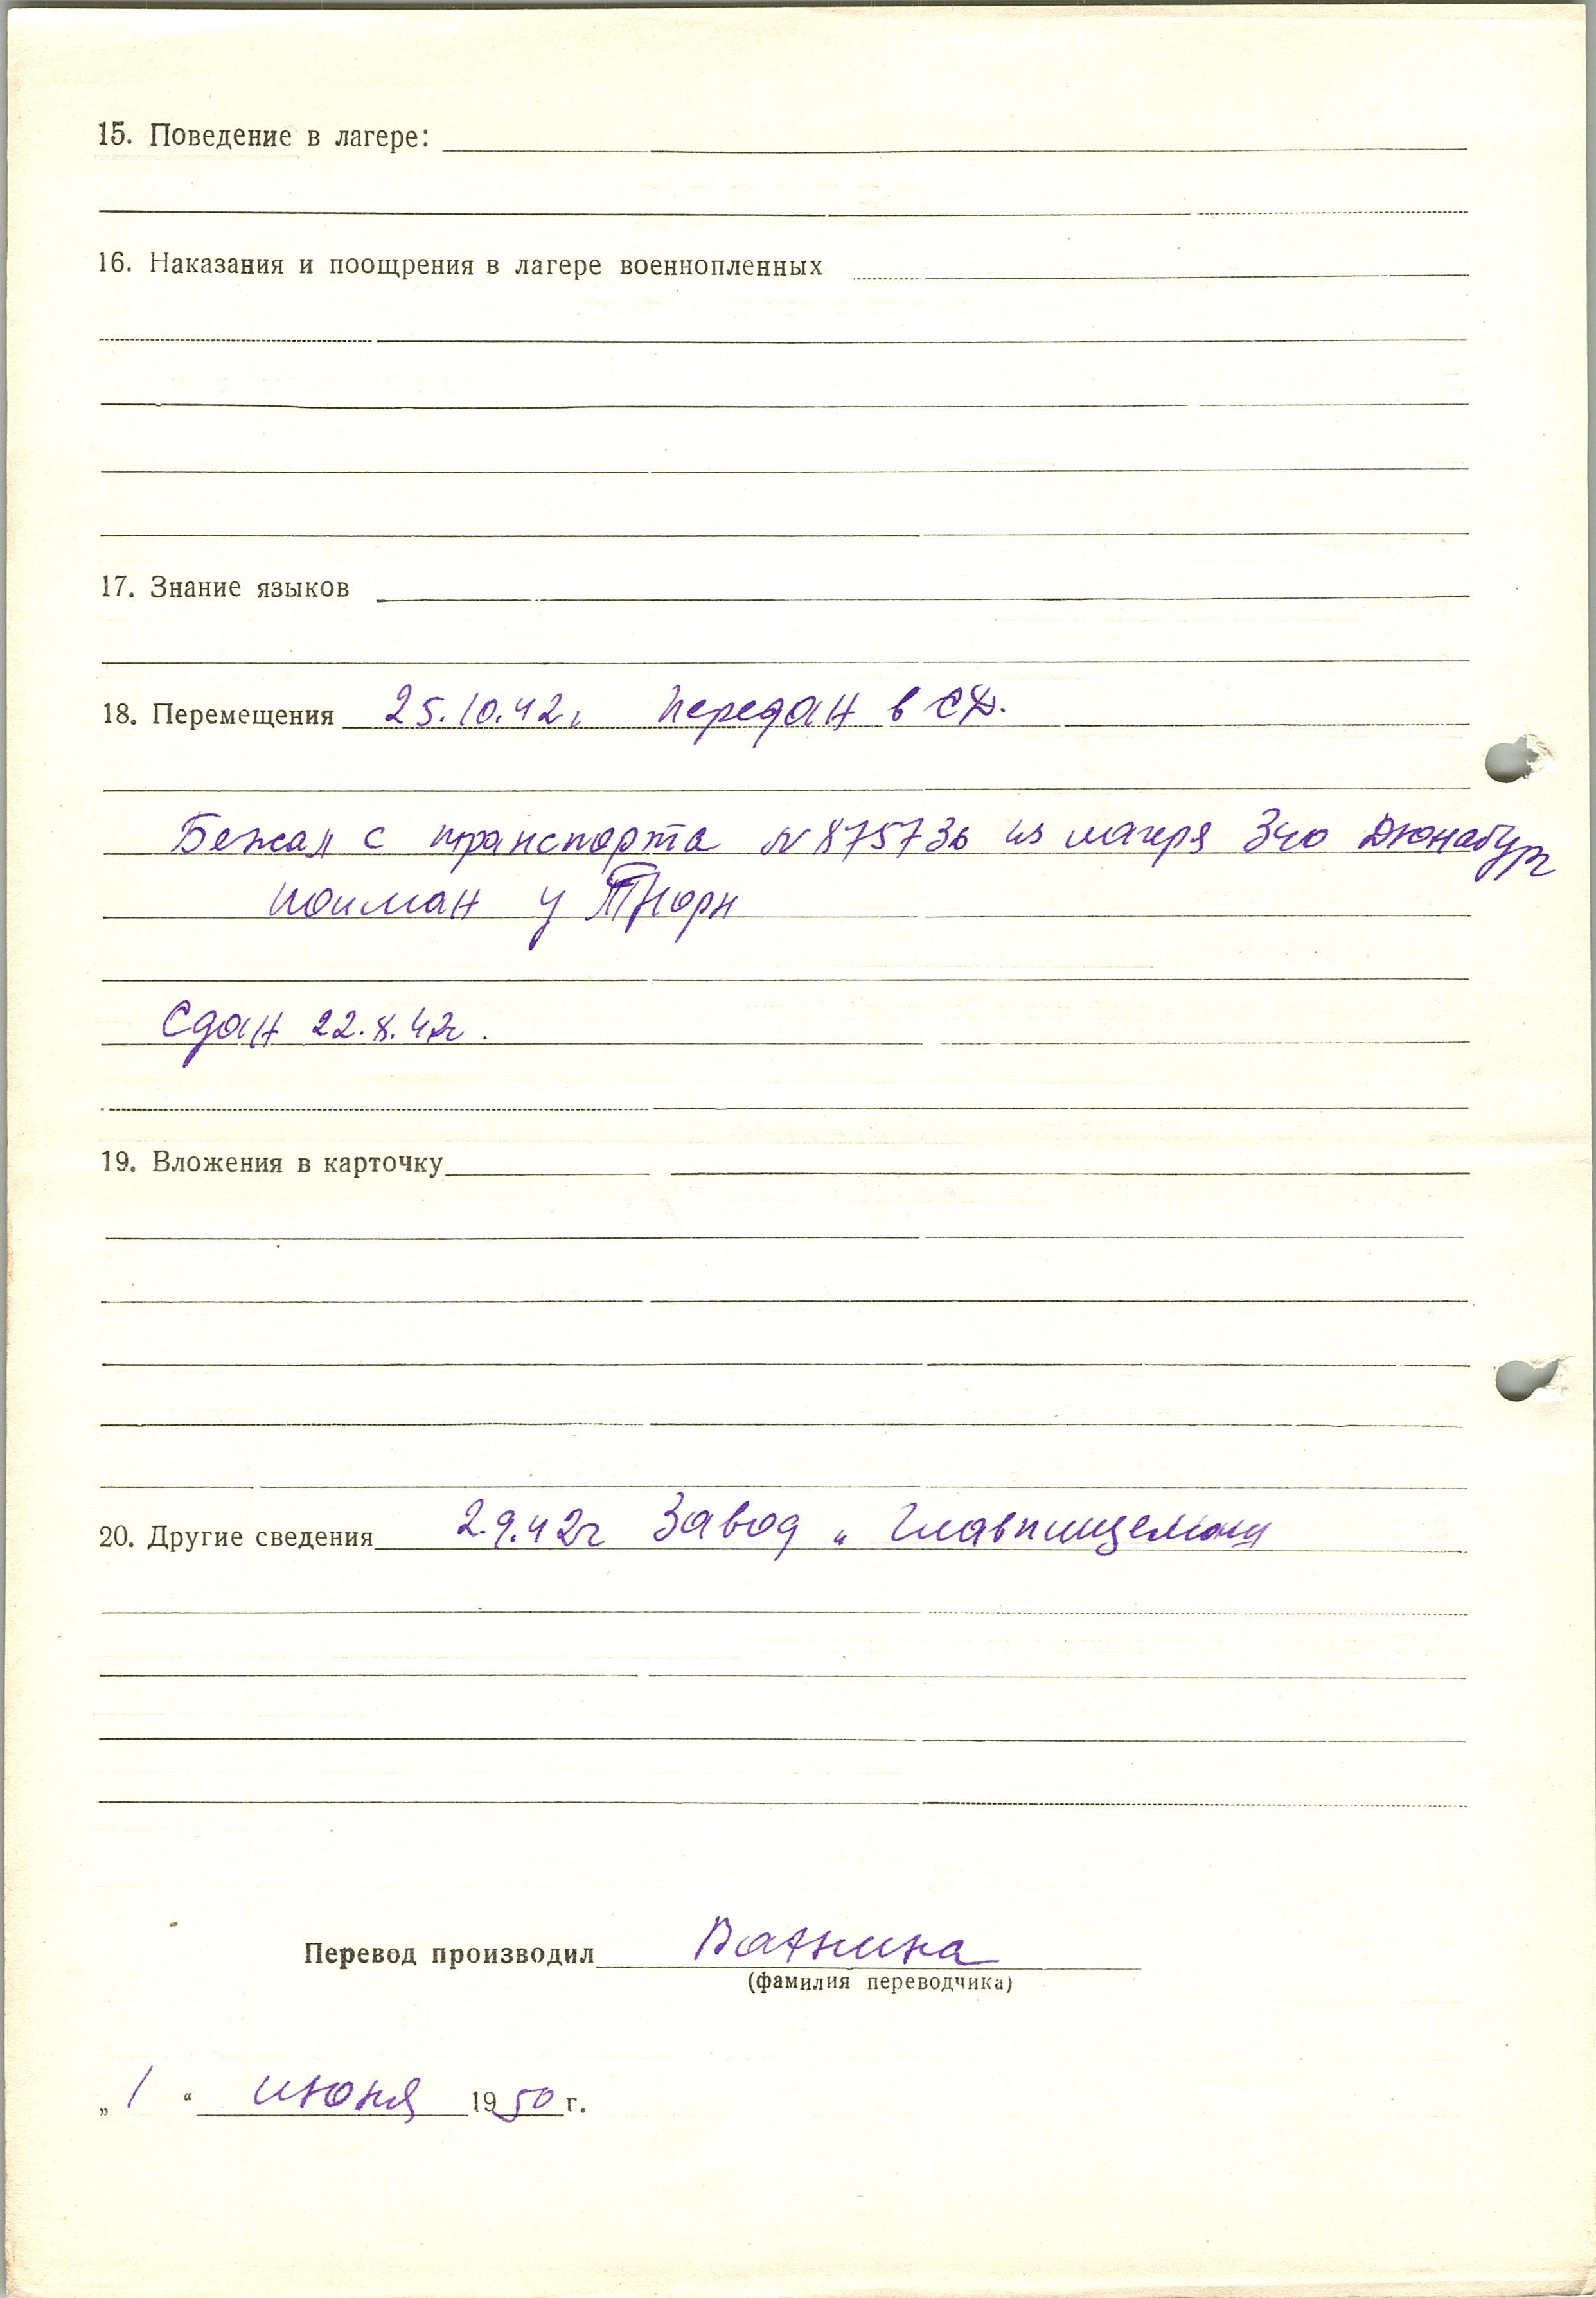 15. Поведение в лагере:
16. Наказания и поощрения в лагере военнопленных
17. Знание языков
18. Перемещения 25.10.42г передан в СД.
Бежал с транспорта № 875736 из лагеря 340 Дюнабург
пойман у Торн
Сдан 22.8.42г.
19. Вложения в карточку
20. Другие сведения 2.9.42г Завод „
Перевод производил
(фамилия переводчика)
„ 1 “ июня 1950 г.